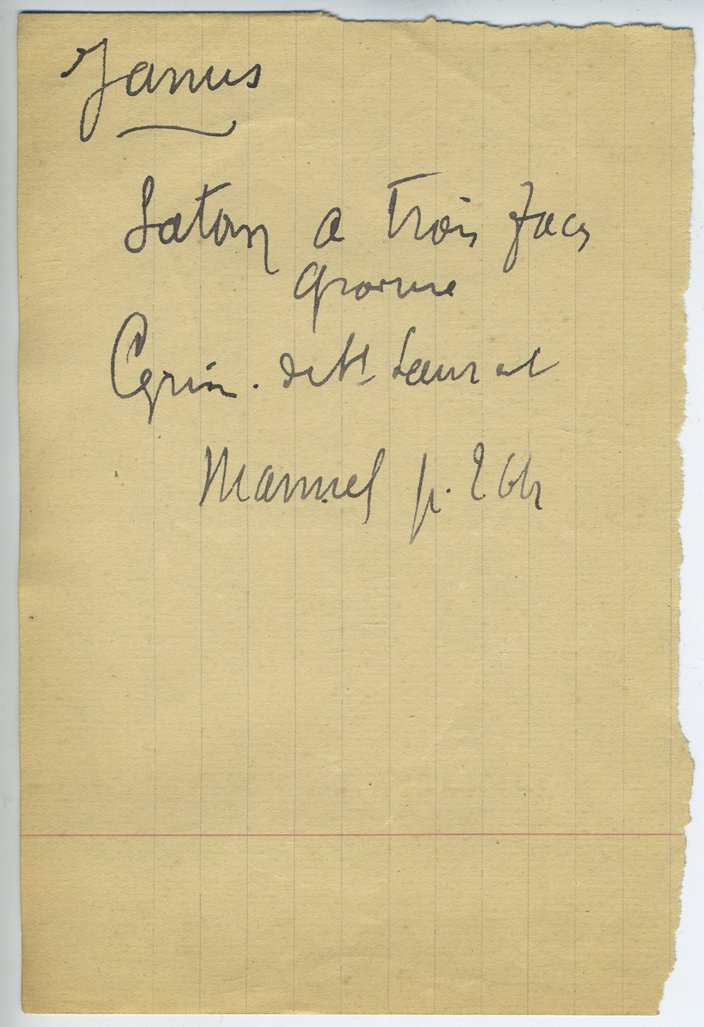 Janus
Satan a trois faces
gravure
Cgrim. de St Laurent
Manuel p. 264